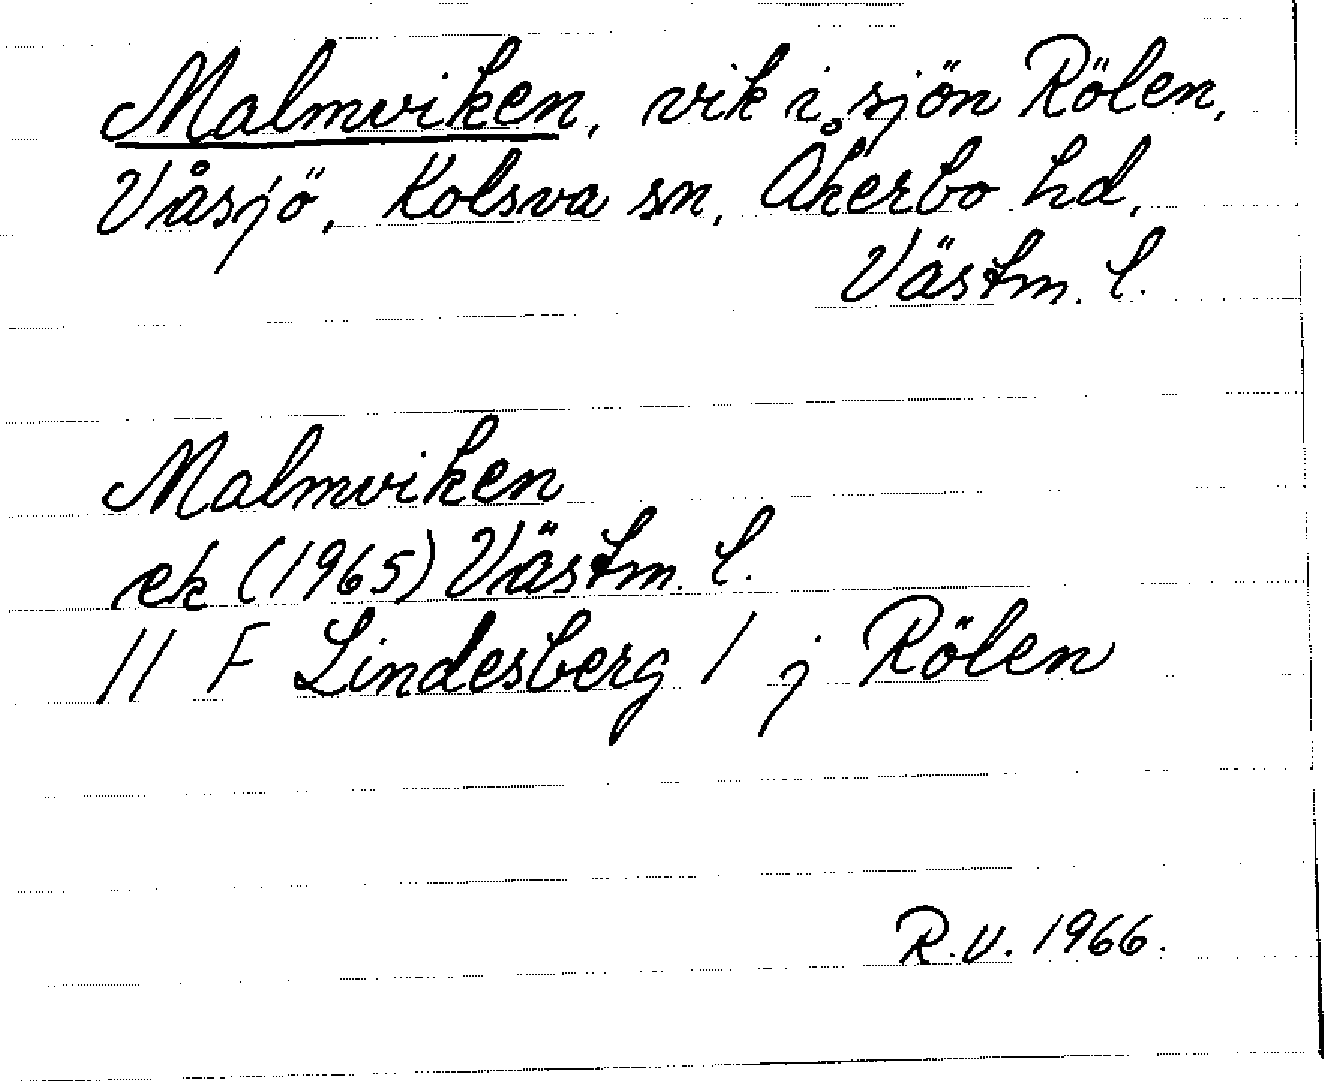 Malmviken, vik i sjön Rölen,
Våsjö, Kolsva sn, Åkerbo hd,
Västm. l.
Malmviken
ek (1965) Västm. l.
11 F Lindesberg / j Rölen
R.V. 1966.